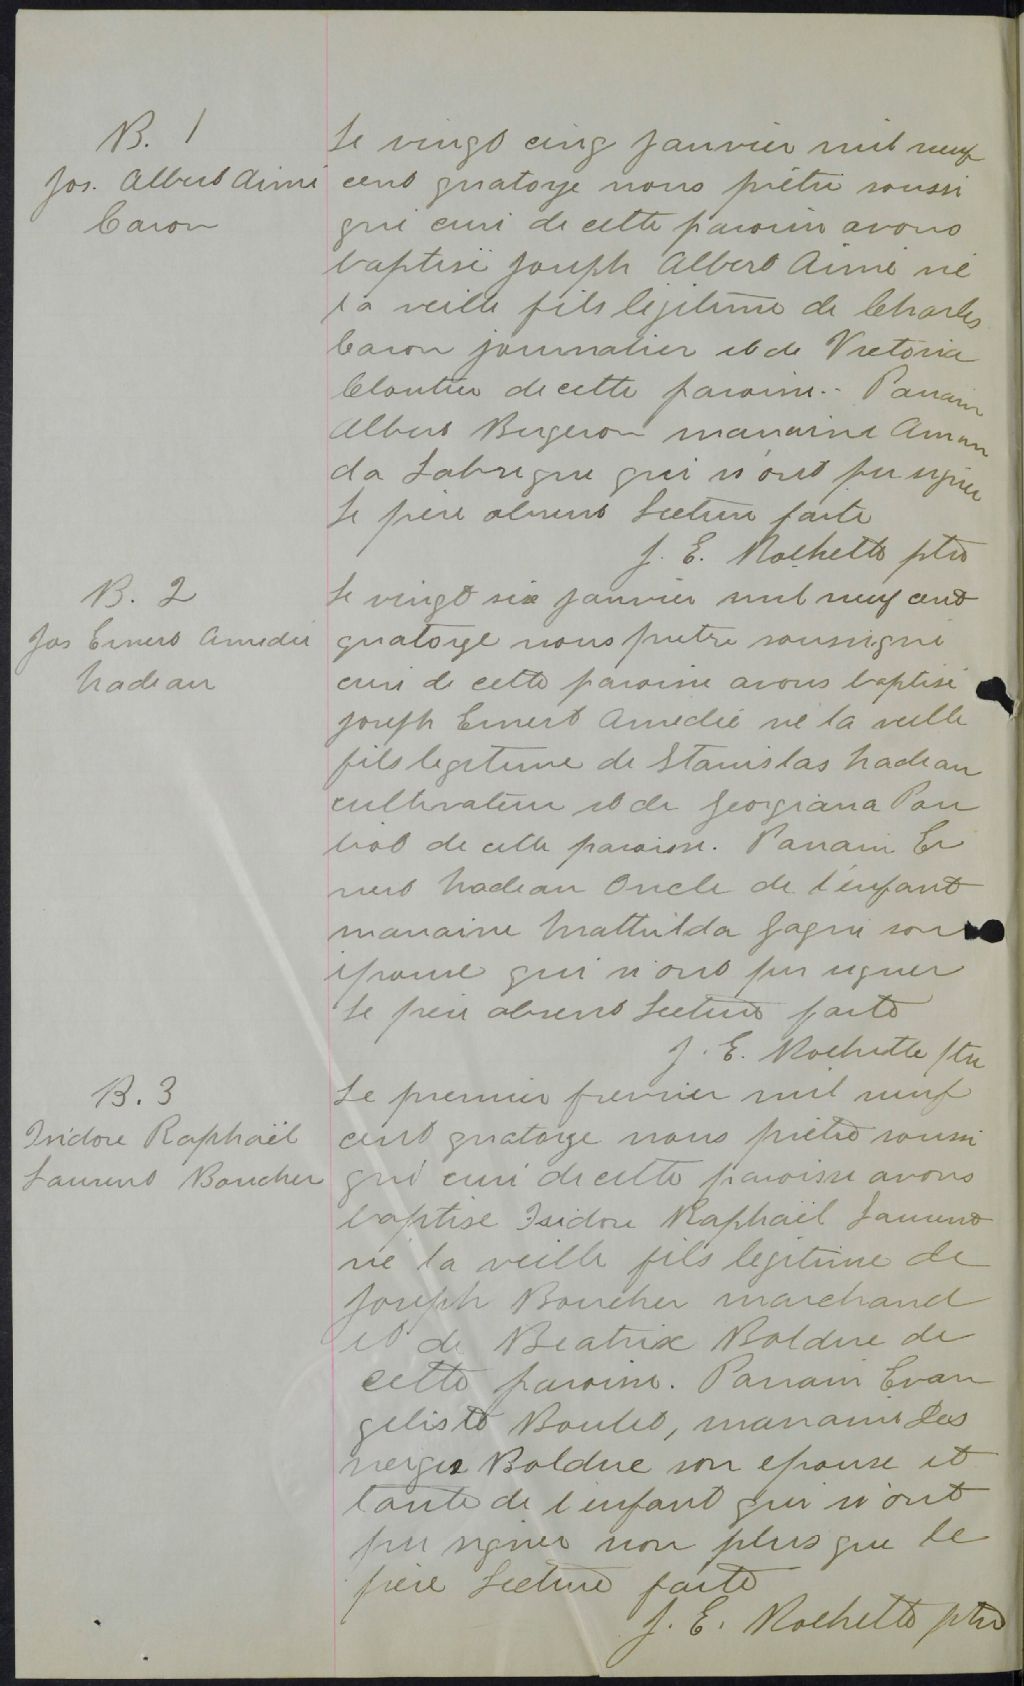 B. 1
Jos. Albert Aimé
Caron
Le vingt cinq janvier mil neuf
cent quatorze nous prêtre soussi
gné curé de cette paroisse avons
baptisé Joseph Albert Aimé né
la veille fils légitime de Charles
Caron journalier et de Victoria
Cloutier de cette paroisse.- Parrain
Albert Bergeron marraine Aman
da Labregne qui n'ont pu signer
Le père absent Lecture faite
J. E. Rochette ptre
B. 2
Jos Ernest Amédée
Nadeau
Le vingt six janvier mil neuf cent
quatorze nous prêtre soussigné
curé de cette paroisse avons baptisé
Joseph Ernest Amedée né la veille
fils legitime de Stanislas Nadeau
cultivateur et de Georgiana Pou
liot de cette paroisse. Parrain Er
nest Nadeau Oncle de l'enfant
marraine Mathilda Gagné son
épouse qui n'ont pu signer
Le père absent Lecture faite
J. E. Rochette ptre
B. 3
Isidore Raphaël
Laurent Boucher
Le premier fevrier mil neuf
cent quatorze nous prêtre soussi
gné curé de cette paroisse avons
baptisé Isidore Raphaël Laurent
né la veille fils legitime de
Joseph Boucher marchand
et de Beatrix Bolduc de
cette paroisse. Parrain Evan
geliste Boulet, marraine Des
neiges Bolduc son epouse et
tante de l'enfant qui n'ont
pu signer non plus que le
père Lecture faite
J. E. Rochette ptre